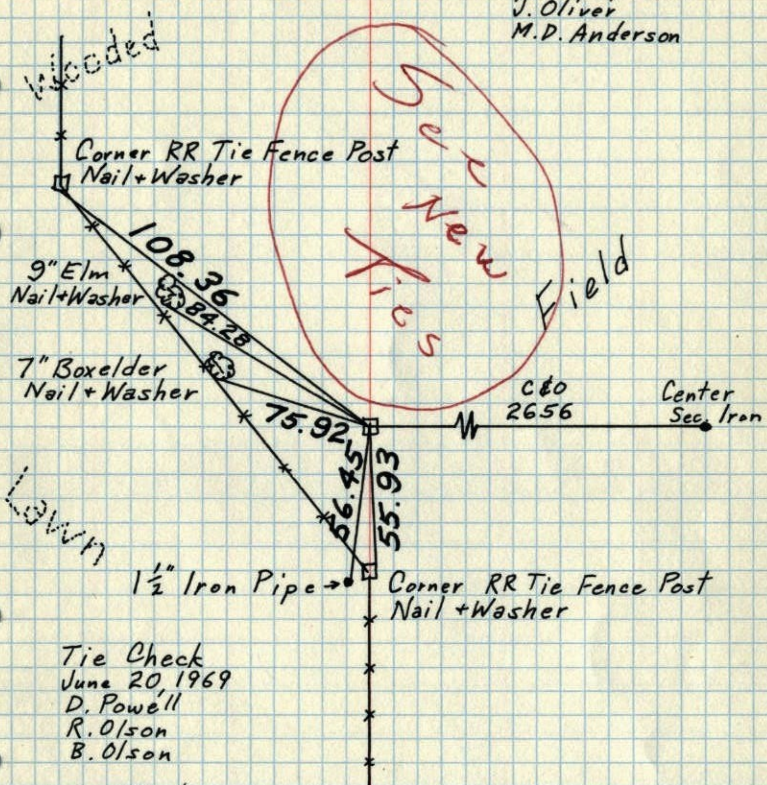 J. Oliver
M.D. Anderson
Wooded
See
New
Ties
Corner RR Tie Fence Post
Nail + Washer
108.36
9" Elm
Nail + Washer
84.28
Field
7" Boxelder
Nail + Washer
75.92
C&O
2656
Center
Sec. Iron
56.45
55.93
Lawn
1½" Iron Pipe →
Corner RR Tie Fence Post
Nail + Washer
Tie Check
June 20, 1969
D. Powell
R. Olson
B. Olson